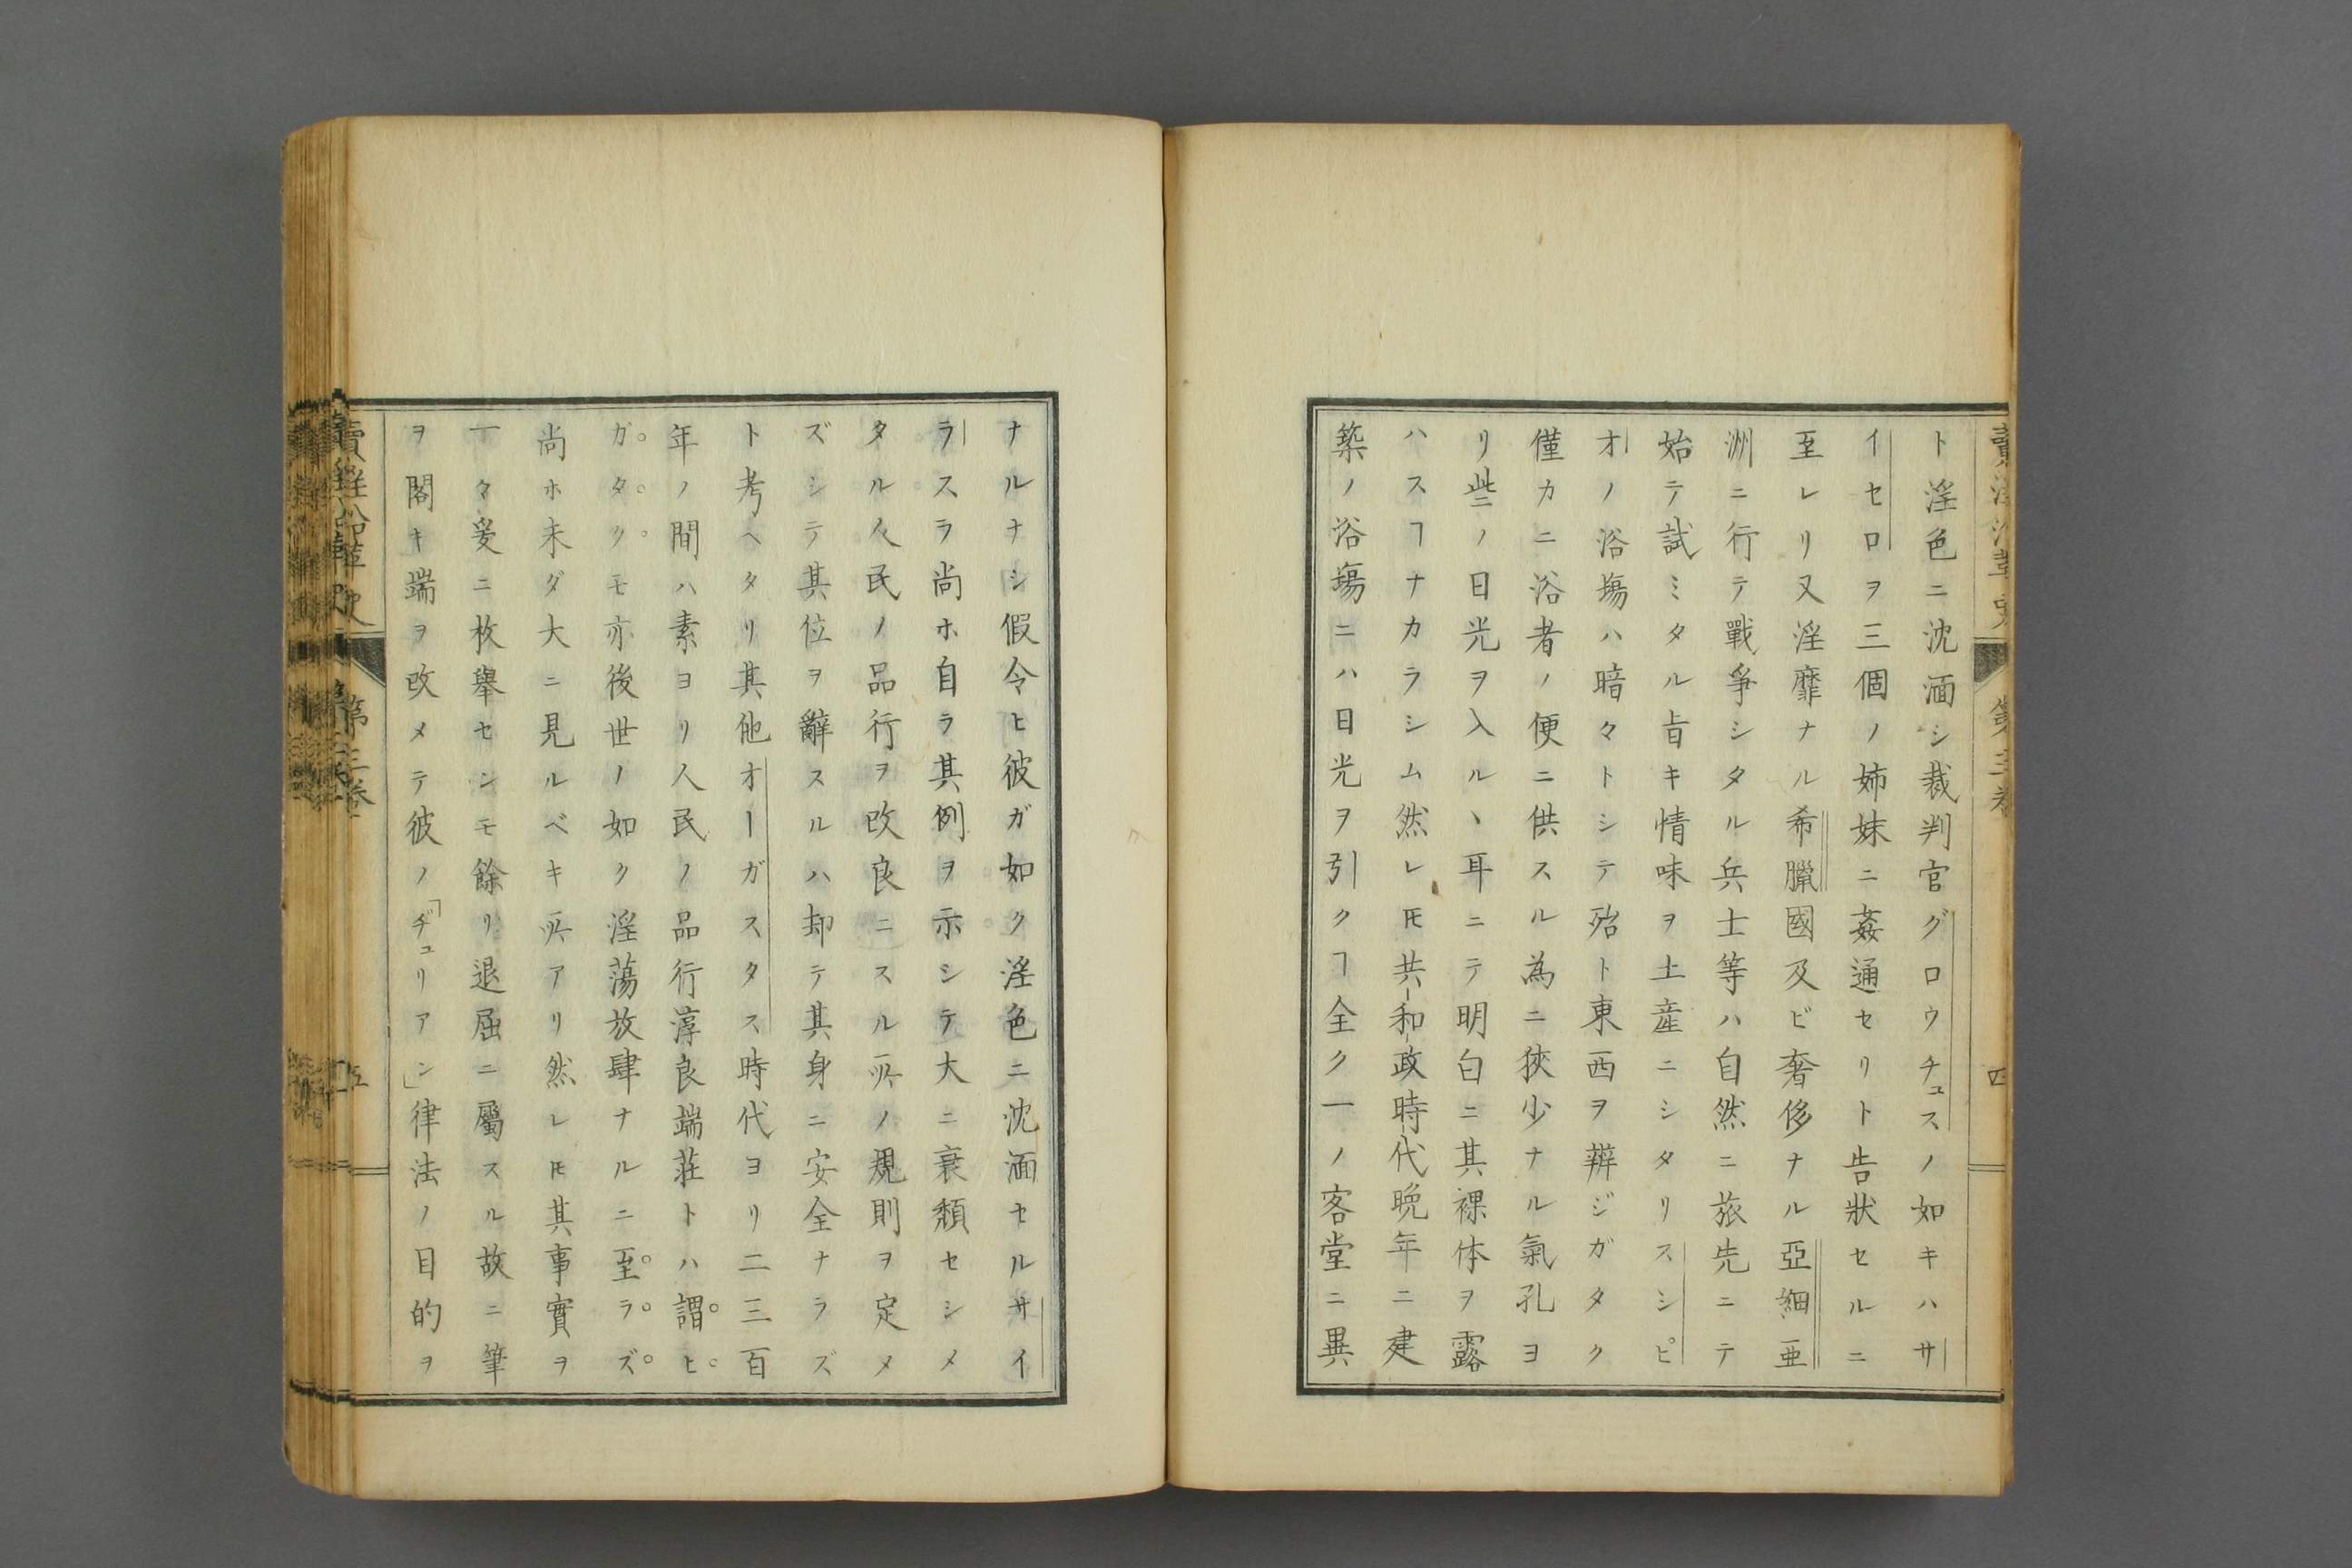 ト淫色ニ沈湎シ裁判官グロウチュスノ如キハサ
イセロヲ三個ノ姉妹ニ姦通セリト告狀セルニ
至レリ又淫靡ナル希臘國及ビ奢侈ナル亞細亜
洲ニ行テ戰爭シタル兵士等ハ自然ニ旅先ニテ
始テ試ミタル旨キ情味ヲ土産ニシタリスシピ
オノ浴塲ハ暗々トシテ殆ト東西ヲ辨ジガタク
僅カニ浴者ノ便ニ供スル為ニ狹少ナル氣孔ヨ
リ些ノ日光ヲ入ルヽ耳ニテ明白ニ其裸体ヲ露
ハスヿナカラシム然レ𪜈共和政時代晩年ニ建
築ノ浴塲ニハ日光ヲ引クヿ全ク一ノ客堂ニ異
ナルナシ假令ヒ彼ガ如ク淫色ニ沈湎セルサイ
ラスラ尚ホ自ラ其例ヲ示シテ大ニ衰頽セシメ
タル人民ノ品行ヲ改良ニスル所ノ規則ヲ定メ
ズシテ其位ヲ辭スルハ却テ其身ニ安全ナラズ
ト考ヘタリ其他オーガスタス時代ヨリ二三百
年ノ間ハ素ヨリ人民ノ品行淳良端莊トハ謂ヒ
ガタクモ亦後世ノ如ク淫蕩放肆ナルニ至ラズ
尚ホ未ダ大ニ見ルベキ所アリ然レ𪜈其事實ヲ
一々爰ニ枚擧センモ餘リ退屈ニ屬スル故ニ筆
ヲ閣キ端ヲ改メテ彼ノ「ヂュリアン」律法ノ目的ヲ
第三巻
四
第三巻
五